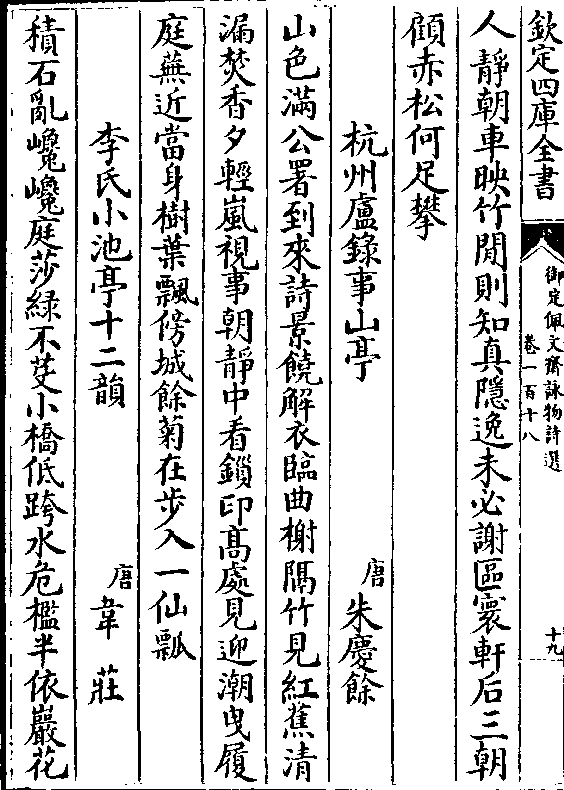 欽定四庫全書
御定佩文齋詠物詩選
卷一百十八
十九
人靜朝車映竹間則知真隱逸未必謝區寰軒后三朝
顧赤松何足攀
杭州盧錄事山亭
唐朱慶餘
山色滿公署到來詩景饒解衣臨曲榭隔竹見紅蕉清
漏焚香夕輕嵐視事朝靜中看鎖印高處見迎潮曳履
庭蕪近當身樹葉飄傍城餘菊在步入一仙瓢
李氏小池亭十二韻
唐韋莊
積石亂巉巉庭莎綠不芟小橋低跨水危檻半依巖花